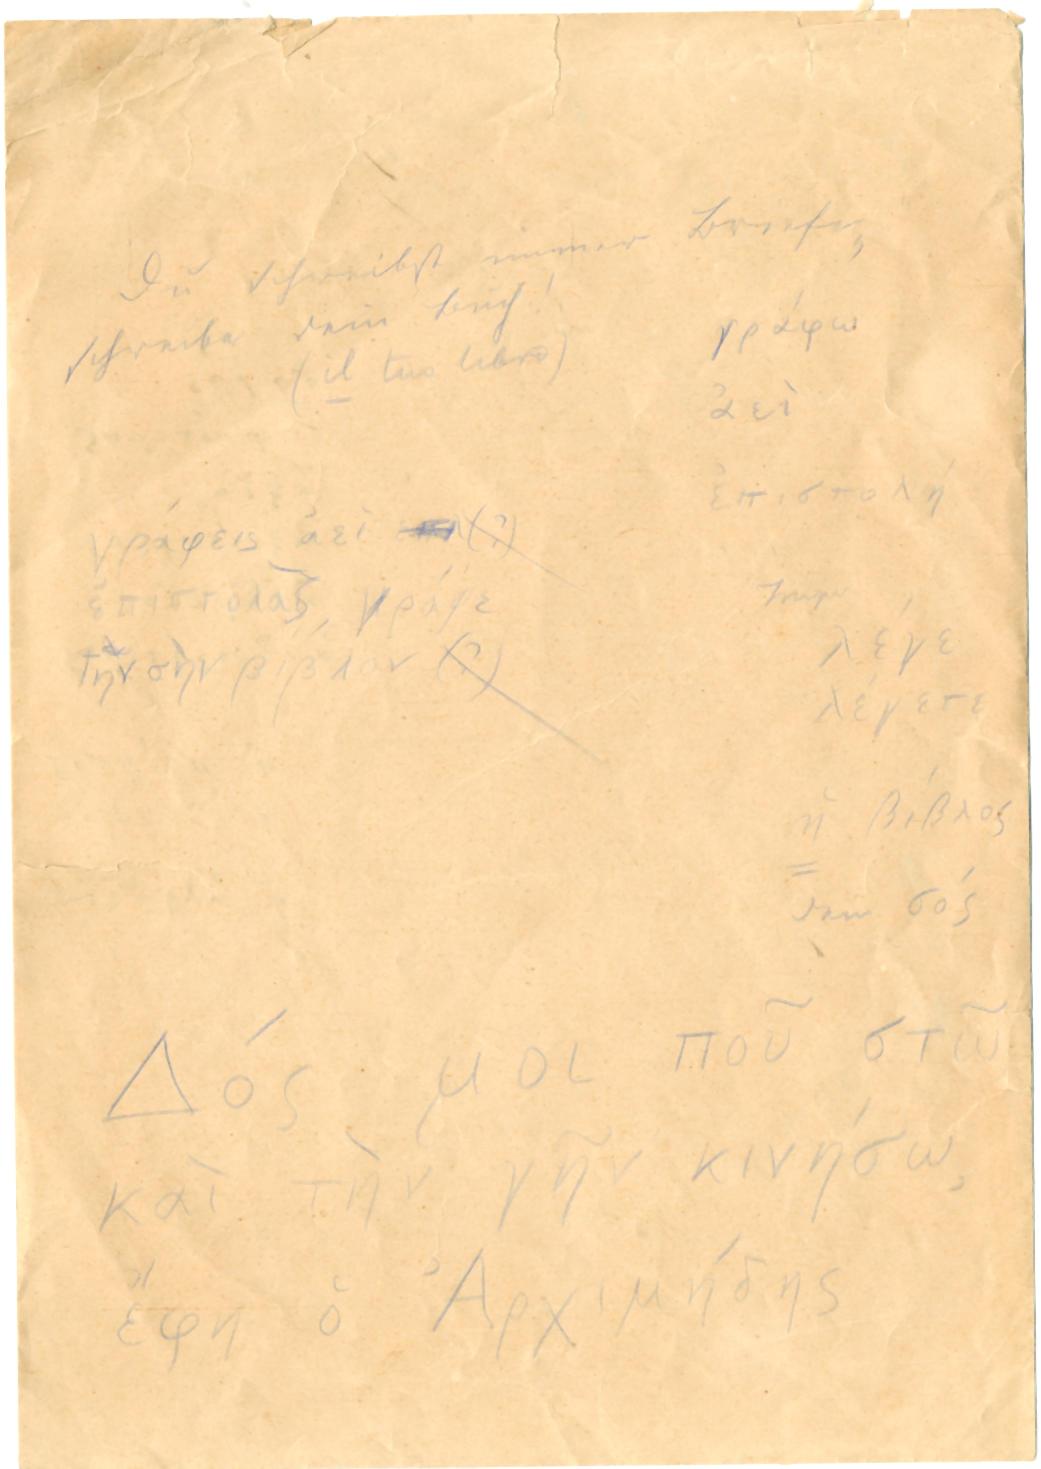 Du schreibst immer Briefe,
schreibe dein Buch!
(il tuo libro)
γράφω
ἀεὶ
ἐπιστολή
γράφεις ἀεὶ (?)
ἐπιστολὰς, γράφε
τὴν σὴν βίβλον (?)
λέγε
λέγετε
ἡ βίβλος
dein σός
Δός μοι ποῦ στῶ
καὶ τὴν γῆν κινήσω,
ἔφη ὁ Ἀρχιμήδης